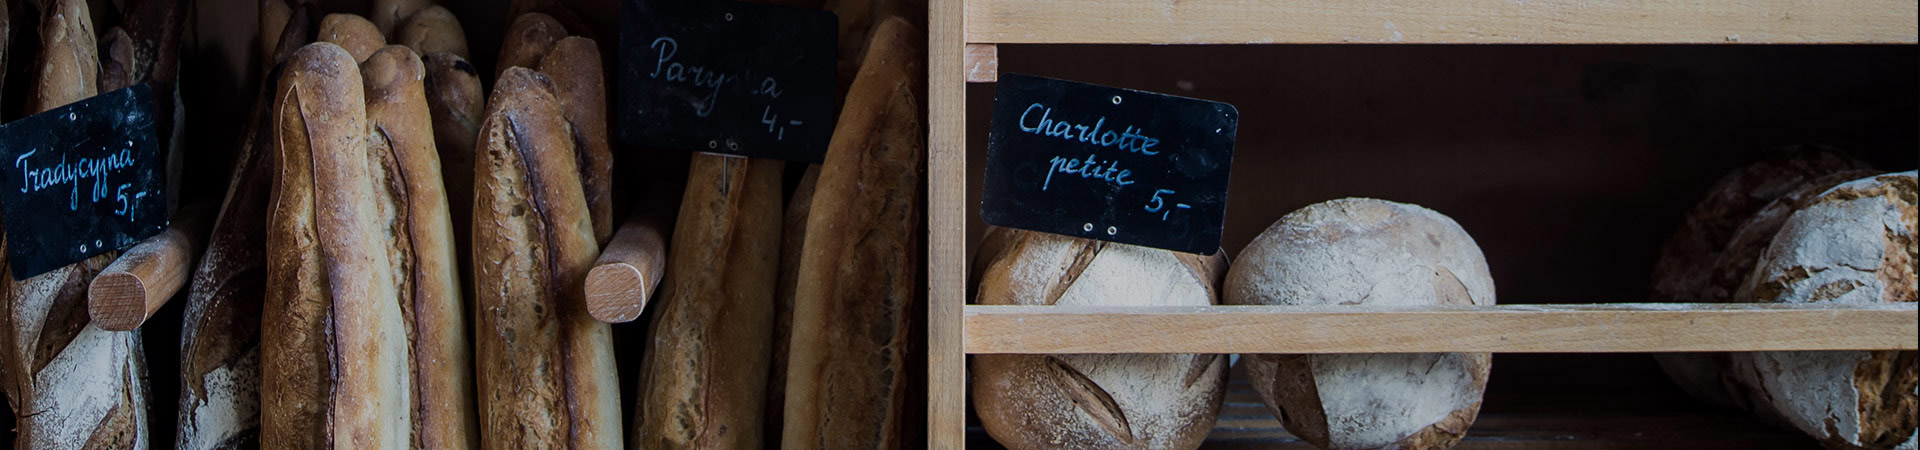 Tradycyjna
5,-
4,-
Charlotte
petite
5,-